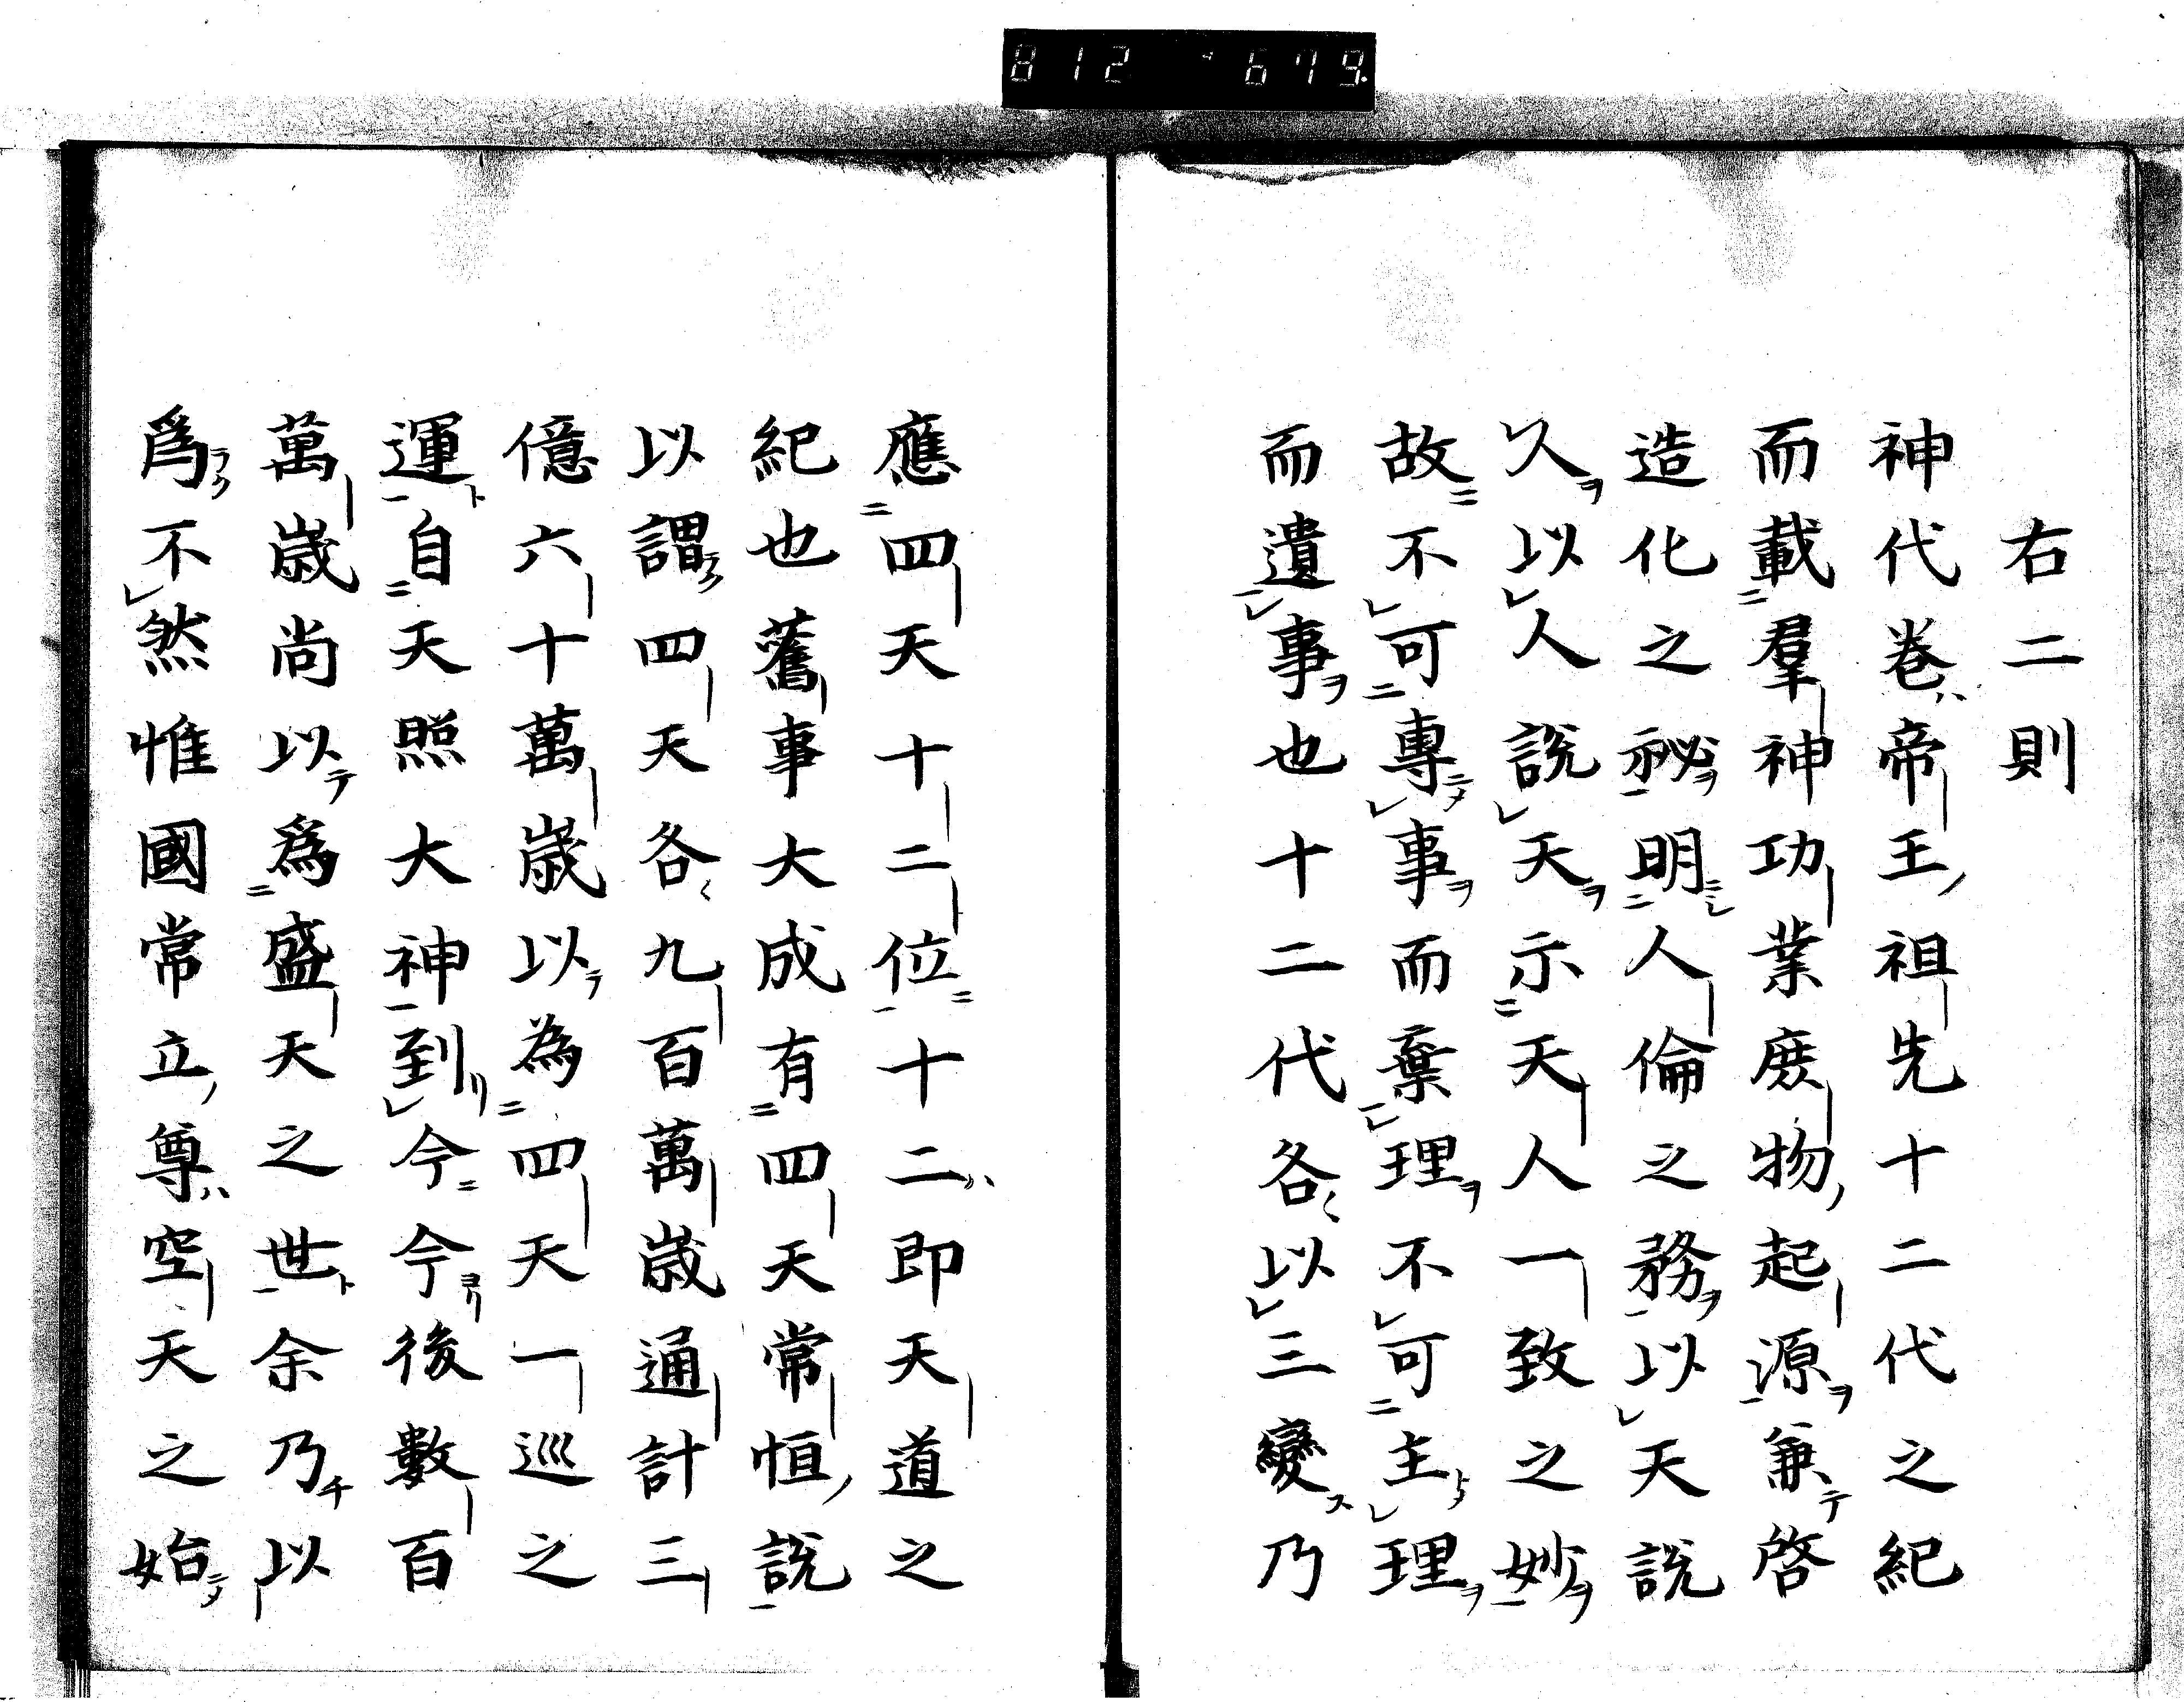 812 679
右二則
神代巻帝王祖先十二代之紀
而載羣神功業庶物起源兼啓
造化之祕明人倫之務以天説
人以人説天示天人一致之妙
故不可專事而棄理不可主理
而遺事也十二代各以三變乃
應四天十二位十二即天道之
紀也舊事大成有四天常恒説
以謂四天各九百萬歳通計三
億六十萬歳以為四天一巡之
運自天照大神到今今後數百
萬歳尚以爲盛天之世余乃以
爲不然惟國常立尊空天之始